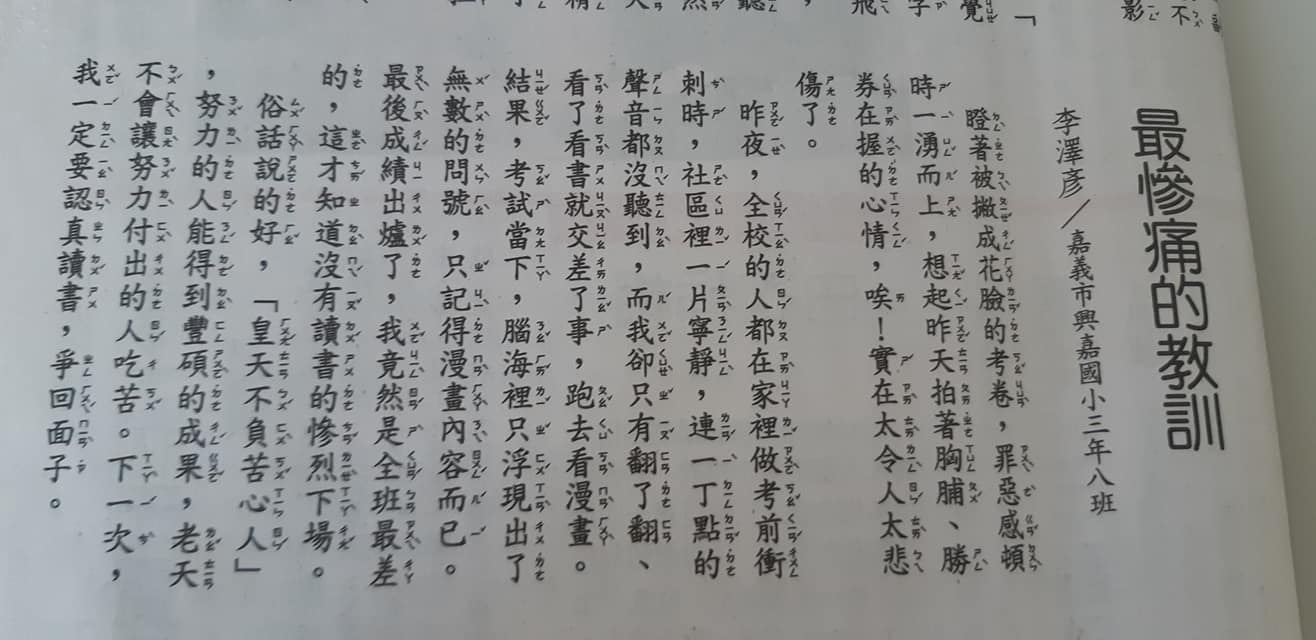 最慘痛的教訓
李澤彥／嘉義市興嘉國小三年八班
瞪著被撇成花臉的考卷，罪惡感頓
時一湧而上，想起昨天拍著胸脯、勝
券在握的心情，唉！實在太令人太悲
傷了。
昨夜，全校的人都在家裡做考前衝
刺時，社區裡一片寧靜，連一丁點的
聲音都沒聽到，而我卻只有翻了翻、
看了看書就交差了事，跑去看漫畫。
結果，考試當下，腦海裡只浮現出了
無數的問號，只記得漫畫內容而已。
最後成績出爐了，我竟然是全班最差
的，這才知道沒有讀書的慘烈下場。
俗話說的好，「皇天不負苦心人」
，努力的人能得到豐碩的成果，老天
不會讓努力付出的人吃苦。下一次，
我一定要認真讀書，爭回面子。